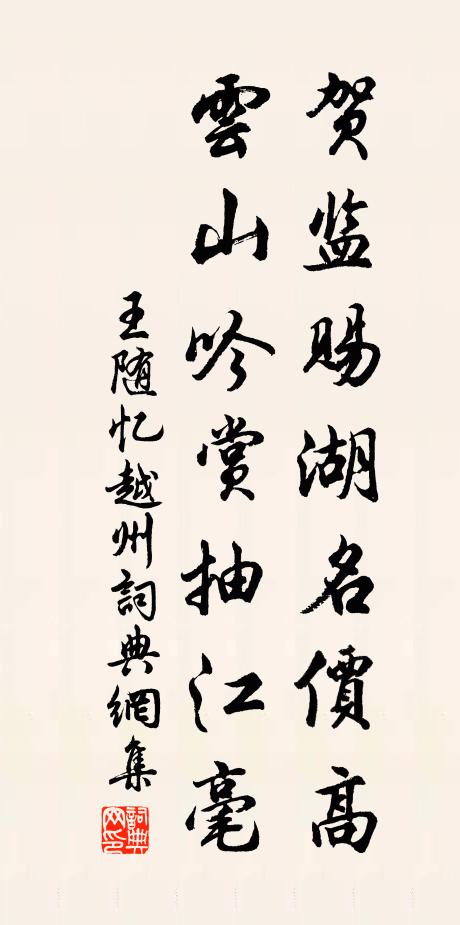 贺监赐湖名價高
雲山吟赏抽江毫
王随忆越州詞典網集
詞典網印